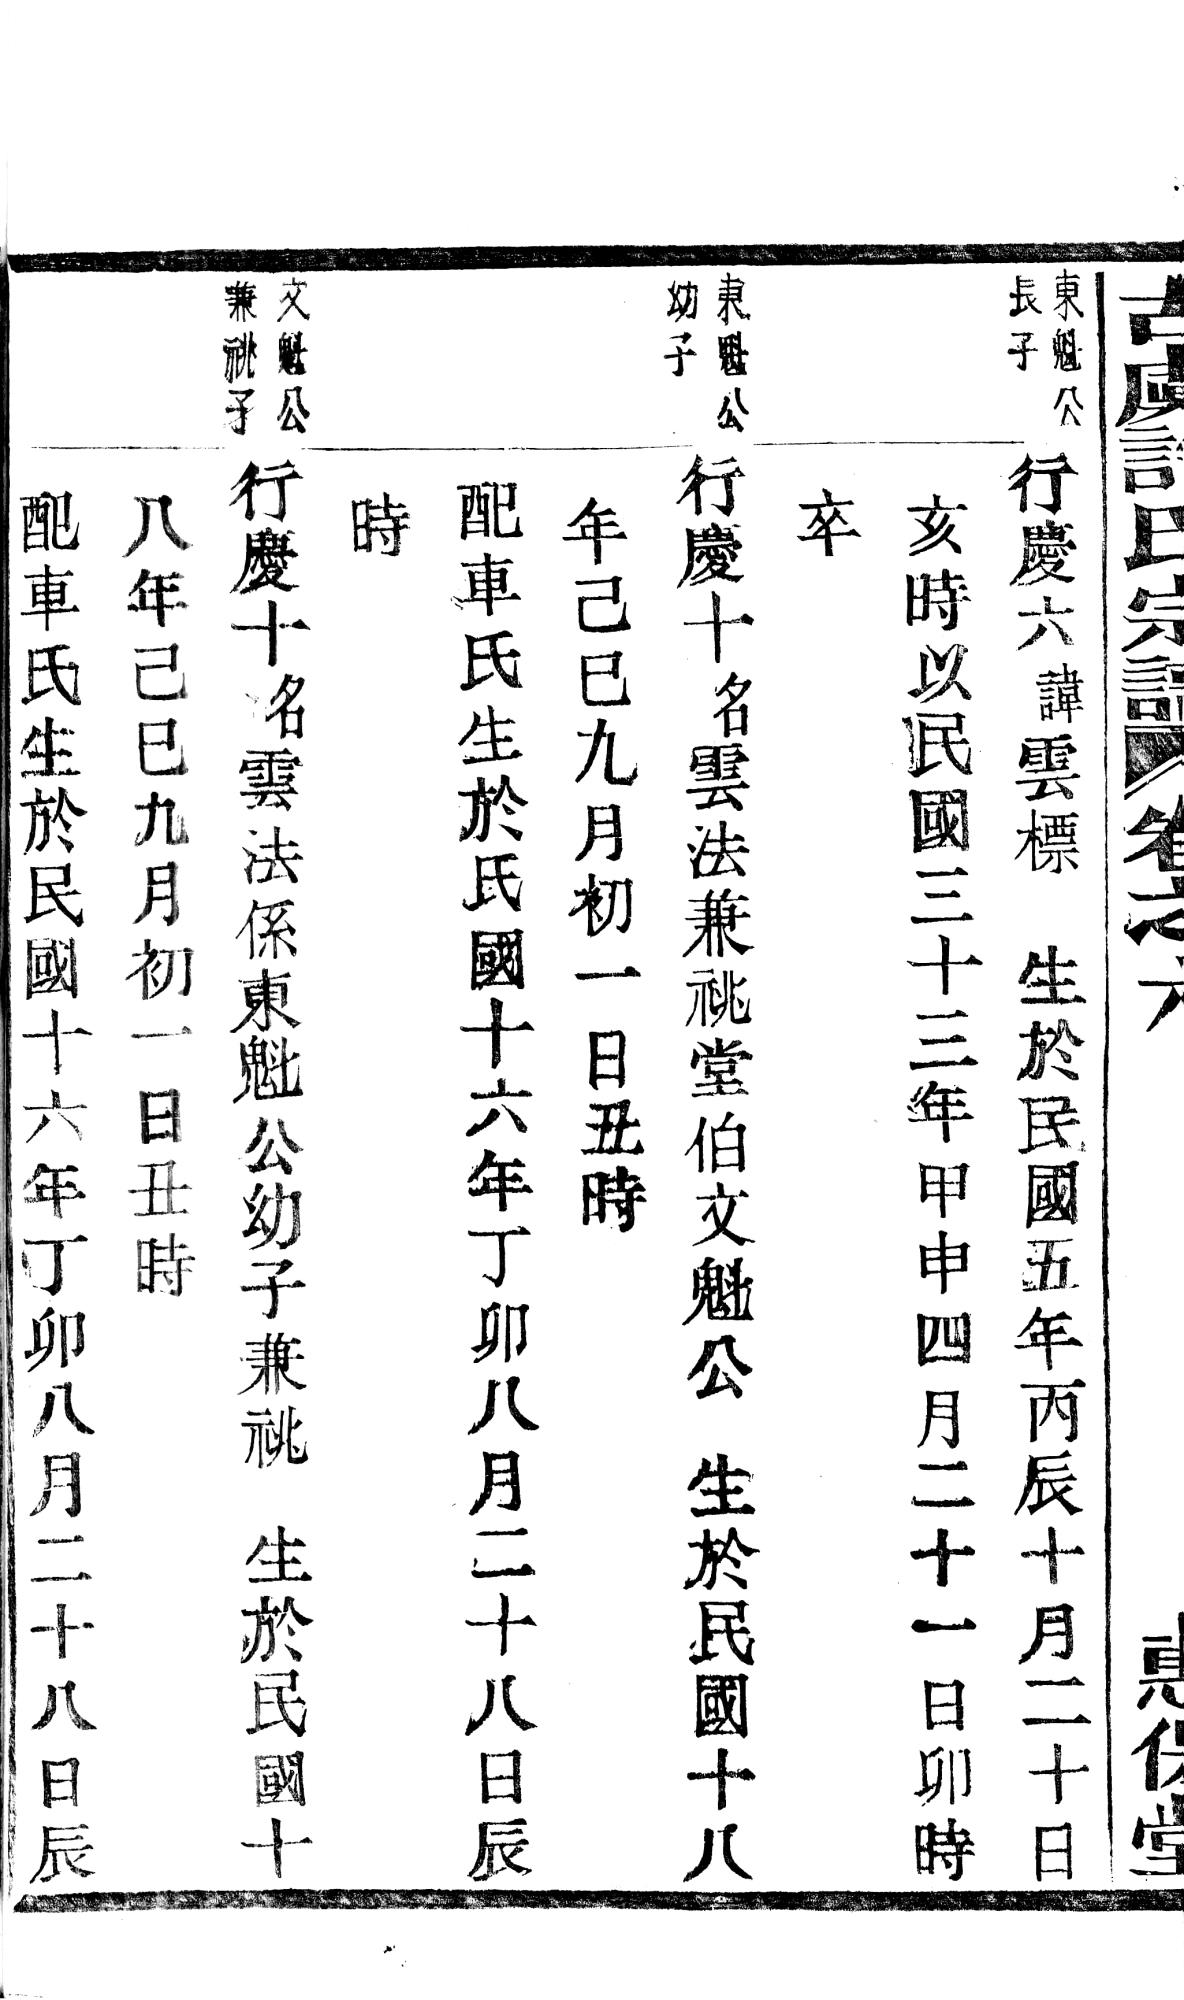 古虞許氏宗譜 卷之六
惠保堂
東魁公
長子
行慶六 諱雲標 生於民國五年丙辰十月二十日
亥時以民國三十三年甲申四月二十一日卯時
卒
東魁公
幼子
行慶十 名雲法兼祧堂伯文魁公 生於民國十八
年己巳九月初一日丑時
配車氏生於民國十六年丁卯八月二十八日辰
時
文魁公
兼祧子
行慶十 名雲法係東魁公幼子兼祧 生於民國十
八年己巳九月初一日丑時
配車氏生於民國十六年丁卯八月二十八日辰